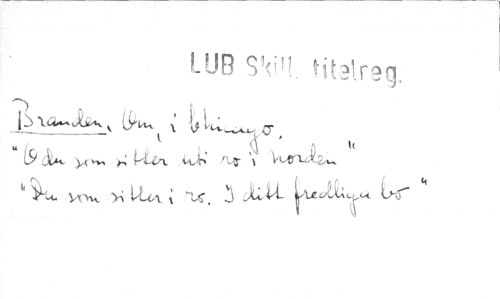 LUB Skill. titelreg.
Branden, Om, i Chicago.
"O du som sitter uti ro i norden"
"Du som sitter i ro. I ditt fredliga bo"